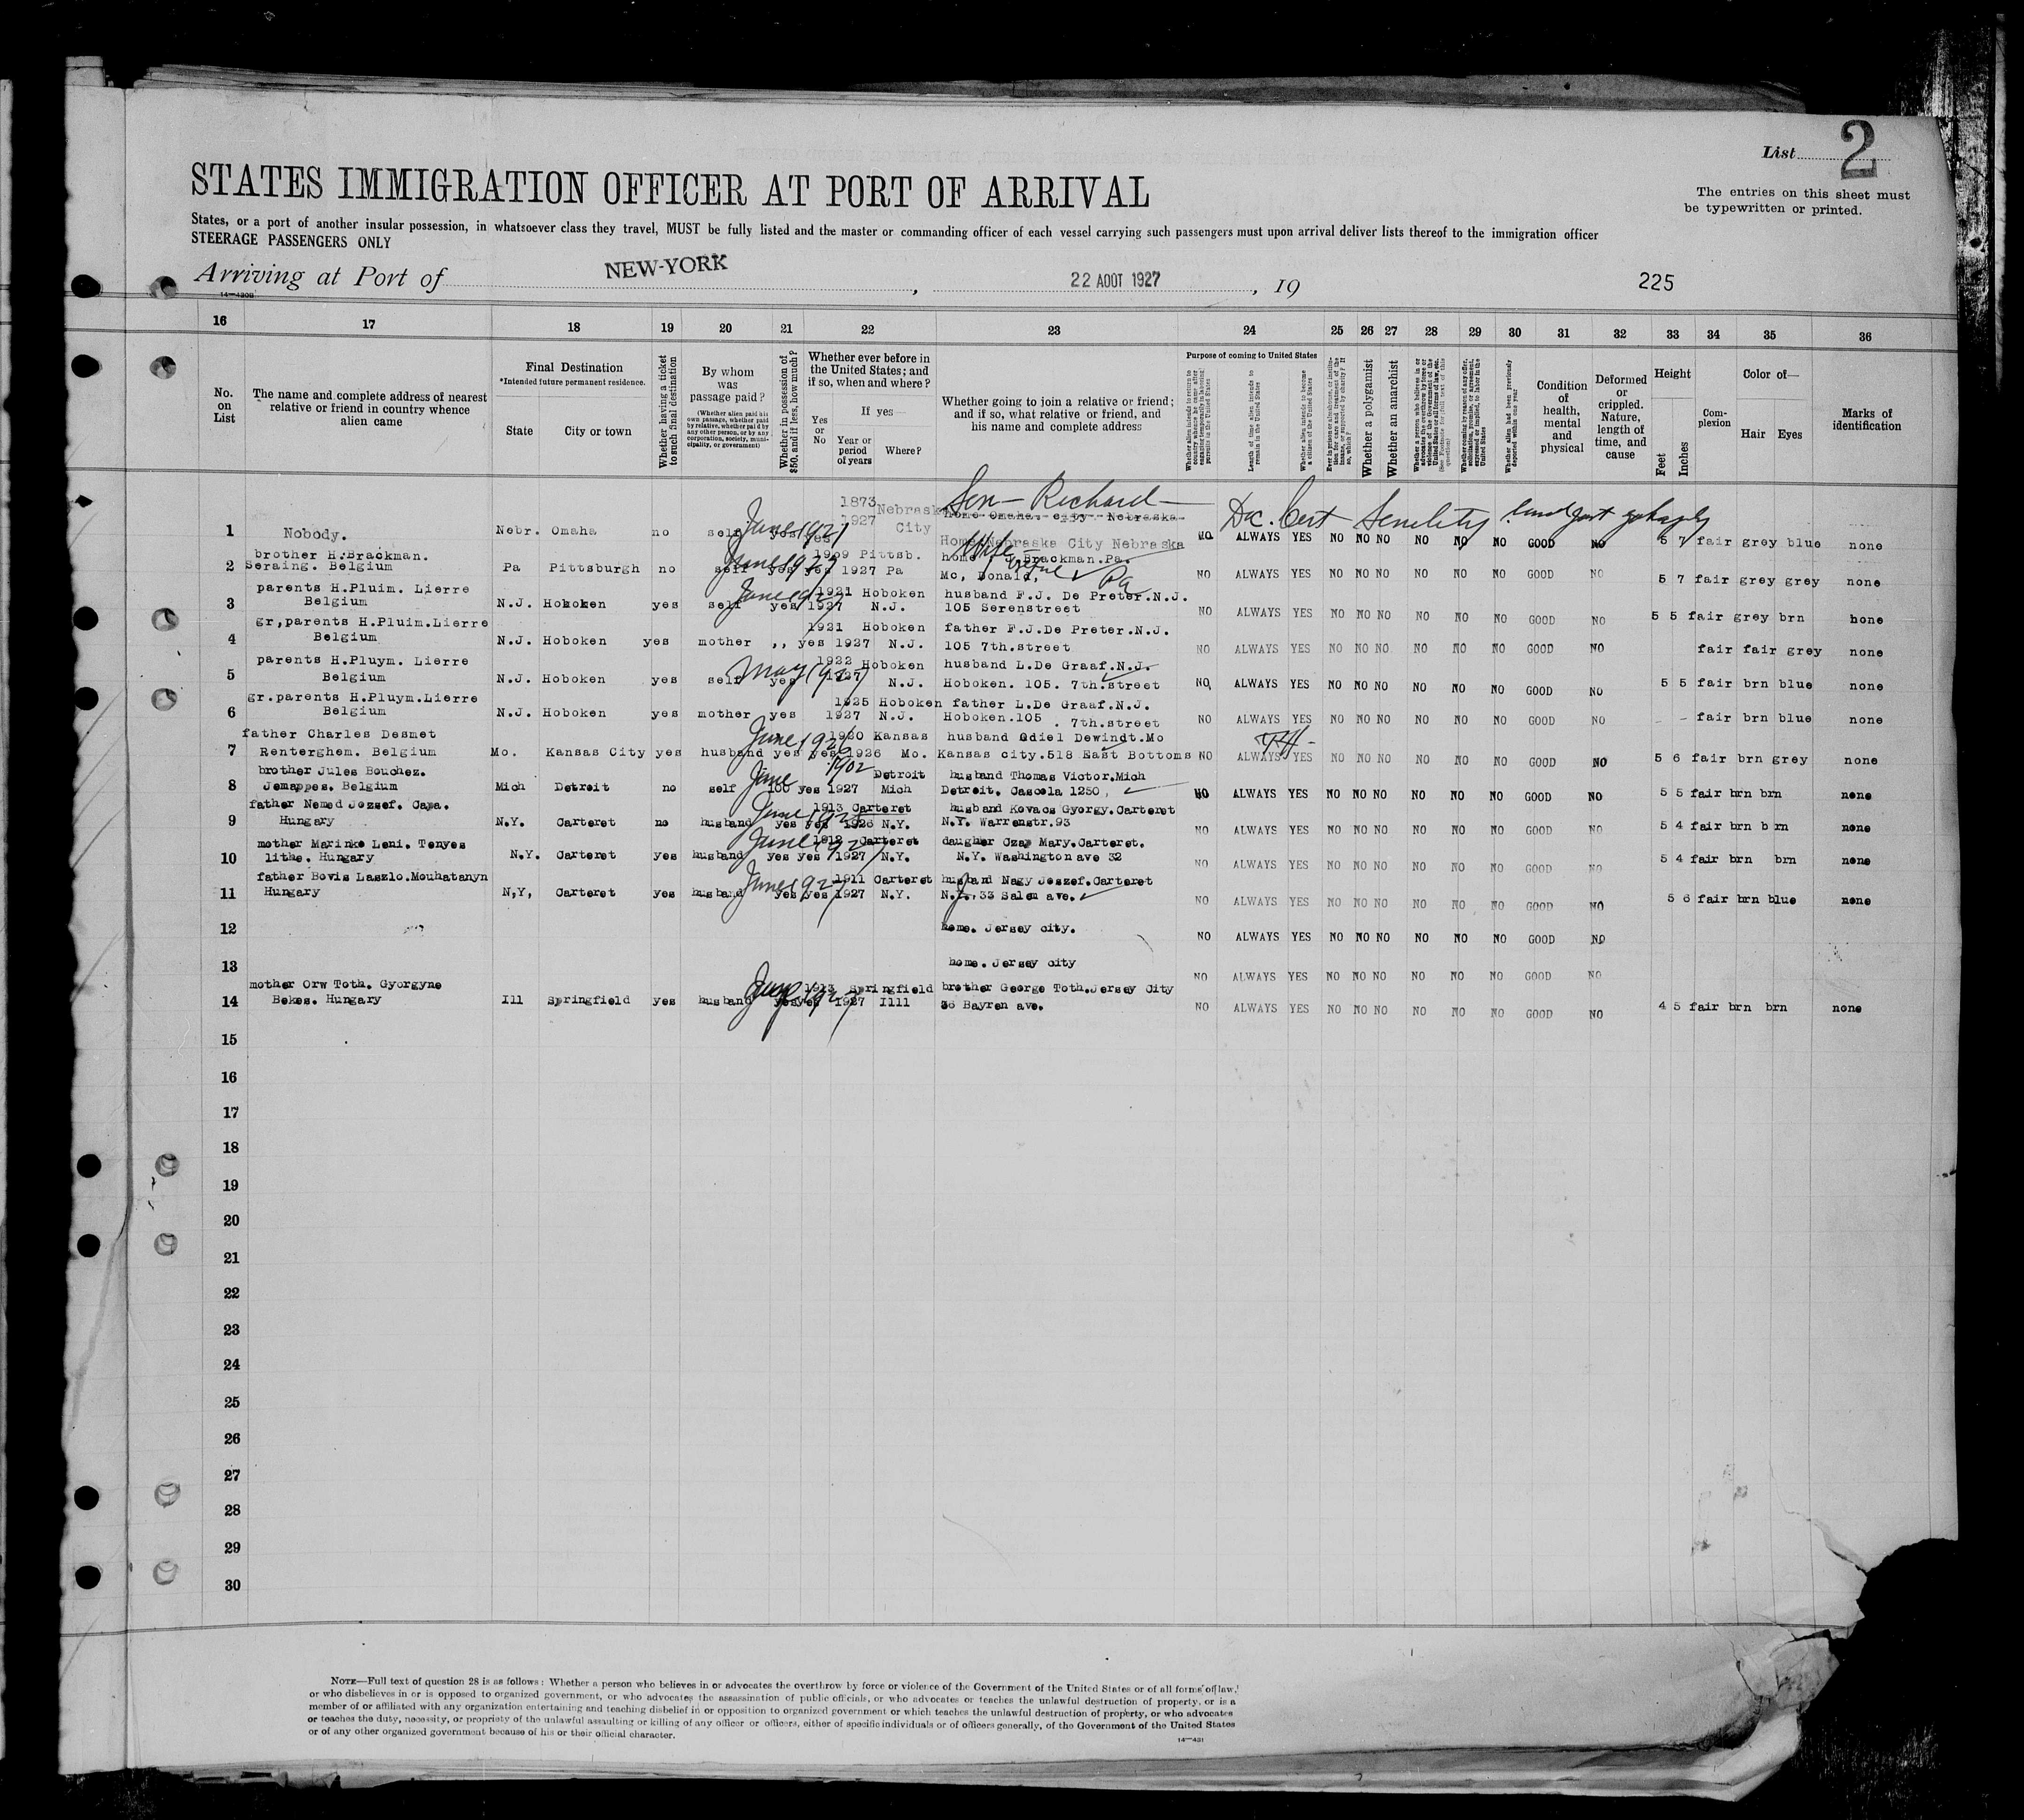 List 2
STATES IMMIGRATION OFFICER AT PORT OF ARRIVAL
The entries on this sheet must
be typewritten or printed.
States, or a port of another insular possession, in whatsoever class they travel, MUST be fully listed and the master or commanding officer of each vessel carrying such passengers must upon arrival deliver lists thereof to the immigration officer
STEERAGE PASSENGERS ONLY
Arriving at Port of NEW-YORK , 22 AOUT 1927 , 19 225
16 17 18 19 20 21 22 23 24 25 26 27 28 29 30 31 32 33 34 35 36
No. on List
The name and complete address of nearest relative or friend in country whence alien came
Final Destination
*Intended future permanent residence.
State
City or town
Whether having a ticket to such final destination
By whom was passage paid?
(Whether alien paid his own passage, whether paid by relative, whether paid by any other person, or by any corporation, society, municipality, or government)
Whether in possession of $50, and if less, how much?
Whether ever before in the United States; and if so, when and where?
Yes or No
If yes—
Year or period of years
Where?
Whether going to join a relative or friend; and if so, what relative or friend, and his name and complete address
Purpose of coming to United States
Length of time alien intends to remain in the United States
Whether alien intends to become a citizen of the United States
Whether a polygamist
Whether an anarchist
Whether alien had been previously deported within one year
Condition of health, mental and physical
Deformed or crippled. Nature, length of time, and cause
Height
Feet
Inches
Complexion
Color of—
Hair
Eyes
Marks of identification
1873 Nebraska Son - Richard -
1927 City home Omaha. city Nebraska
1 Nobody. Nebr. Omaha no self yes yes June 1927 Home Nebraska City Nebraska NO ALWAYS YES NO NO NO NO NO NO GOOD NO 5 7 fair grey blue none
Doc. Cert Senility
brother H.Brackman. June 1927 1909 Pittsb. Wife home Brackman.Pa.
2 Seraing. Belgium Pa Pittsburgh no self yes yes 1927 Pa Mc, Donald, Pa NO ALWAYS YES NO NO NO NO NO NO GOOD NO 5 7 fair grey grey none
parents H.Pluim. Lierre June 1927 1921 Hoboken husband F.J. De Preter.N.J.
3 Belgium N.J. Hoboken yes self yes 1927 N.J. 105 Serenstreet NO ALWAYS YES NO NO NO NO NO NO GOOD NO 5 5 fair grey brn hone
gr,parents H.Pluim.Lierre 1921 Hoboken father F.J.De Preter.N.J.
4 Belgium N.J. Hoboken yes mother ,, yes 1927 N.J. 105 7th.street NO ALWAYS YES NO NO NO NO NO NO GOOD NO fair fair grey none
parents H.Pluym. Lierre May 1927 1922 Hoboken husband L.De Graaf.N.J.
5 Belgium N.J. Hoboken yes self yes 1927 N.J. Hoboken. 105. 7th.street NO ALWAYS YES NO NO NO NO NO NO GOOD NO 5 5 fair brn blue none
gr.parents H.Pluym.Lierre 1925 Hoboken father L.De Graaf.N.J.
6 Belgium N.J. Hoboken yes mother yes 1927 N.J. Hoboken.105 . 7th.street NO ALWAYS YES NO NO NO NO NO NO GOOD NO - fair brn blue none
father Charles Desmet June 1926 1920 Kansas husband Odiel Dewindt.Mo
7 Renterghem. Belgium Mo. Kansas City yes husband yes yes 1926 Mo. Kansas city.518 East Bottoms NO ALWAYS YES NO NO NO NO NO NO GOOD NO 5 6 fair brn grey none
brother Jules Bouchez. June 1902 Detroit husband Thomas Victor.Mich
8 Jemappes. Belgium Mich Detroit no self 100 yes 1927 Mich Detroit. Cascola 1250, NO ALWAYS YES NO NO NO NO NO NO GOOD NO 5 5 fair brn brn none
father Nemed Jozsef. Capa. June 1913 Carteret husband Kovacs Gyorgy.Carteret
9 Hungary N.Y. Carteret no husband yes yes 1926 N.Y. N.Y. Warrenstr.93 NO ALWAYS YES NO NO NO NO NO NO GOOD NO 5 4 fair brn brn none
mother Marinke Leni. Tenyes June 1927 1912 Carteret daugher Czap Mary.Carteret.
10 lithe. Hungary N.Y. Carteret yes husband yes yes 1927 N.Y. N.Y. Washington ave 32 NO ALWAYS YES NO NO NO NO NO NO GOOD NO 5 4 fair brn brn none
father Bovis Laszlo.Mouhatanyn June 1927 1911 Carteret husband Nagy Joszef.Carteret
11 Hungary N,Y, Carteret yes husband yes yes 1927 N.Y. 33 Salem ave. NO ALWAYS YES NO NO NO NO NO NO GOOD NO 5 6 fair brn blue none
12 home. Jersey city. NO ALWAYS YES NO NO NO NO NO NO GOOD NO
13 home. Jersey city NO ALWAYS YES NO NO NO NO NO NO GOOD NO
mother Orw Toth. Gyorgyne 1927 1913 Springfield brother George Toth.Jersey City
14 Bekes. Hungary Ill Springfield yes husband yes yes 1927 Illl 36 Bayren ave. NO ALWAYS YES NO NO NO NO NO NO GOOD NO 4 5 fair brn brn none
15
16
17
18
19
20
21
22
23
24
25
26
27
28
29
30
NOTE—Full text of question 28 is as follows: Whether a person who believes in or advocates the overthrow by force or violence of the Government of the United States or of all forms of law,
or who disbelieves in or is opposed to organized government, or who advocates the assassination of public officials, or who advocates or teaches the unlawful destruction of property, or is a
member of or affiliated with any organization entertaining and teaching disbelief in or opposition to organized government or which teaches the unlawful destruction of property, or who advocates
or teaches the duty, necessity, or propriety of the unlawful assaulting or killing of any officer or officers, either of specific individuals or of officers generally, of the Government of the United States
or of any other organized government because of his or their official character.
14—431